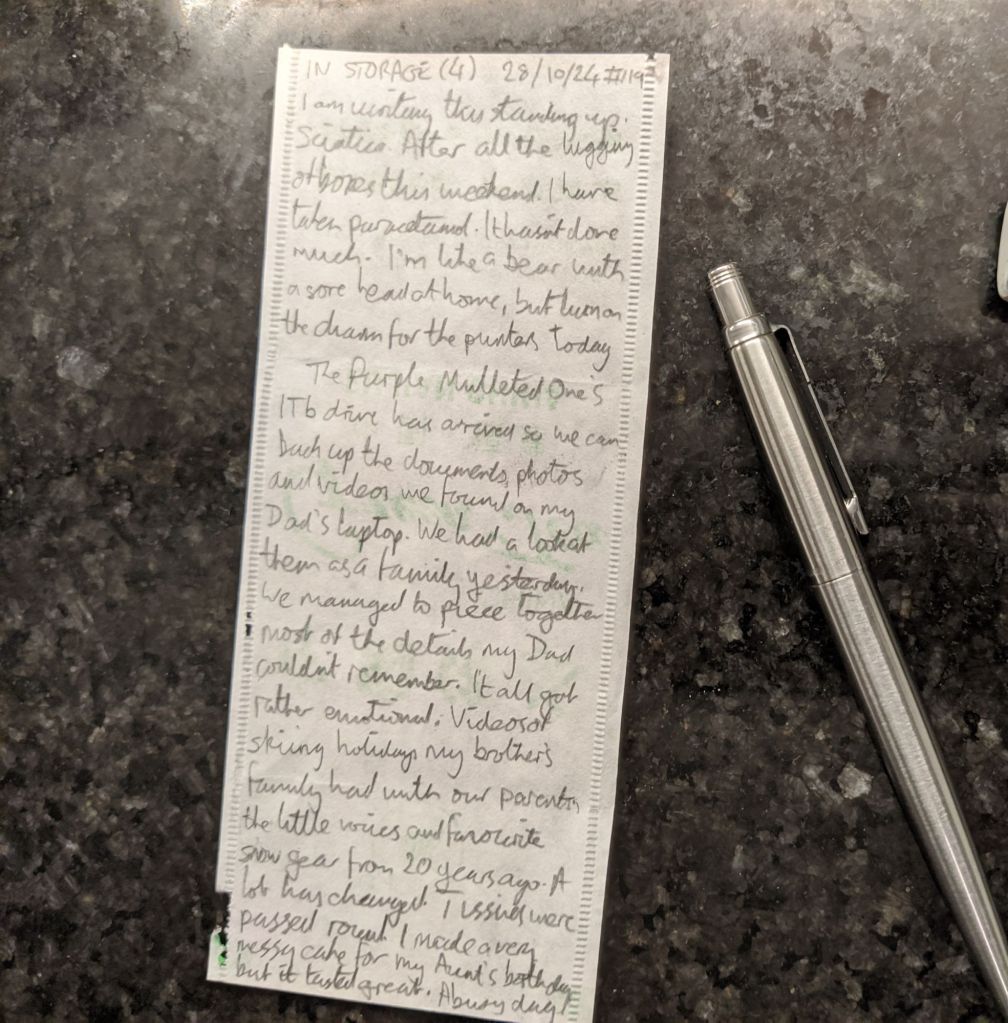 IN STORAGE (4) 28/10/24 #119
I am writing this standing up.
Sciatica. After all the lugging
of boxes this weekend. I have
taken paracetamol. It hasn't done
much. I'm like a bear with
a sore head at home, but turn on
the charm for the punters today
The Purple Mulleted One's
1Tb drive has arrived so we can
back up the documents, photos
and videos we found on my
Dad's laptop. We had a look at
them as a family yesterday.
We managed to piece together
most of the details my Dad
couldn't remember. It all got
rather emotional. Videos of
skiing holidays my brother's
family had with our parents,
the little voices and favourite
snow gear from 20 years ago. A
lot has changed. Tissues were
passed round. I made a very
messy cake for my Aunt's birthday
but it tasted great. A busy day!